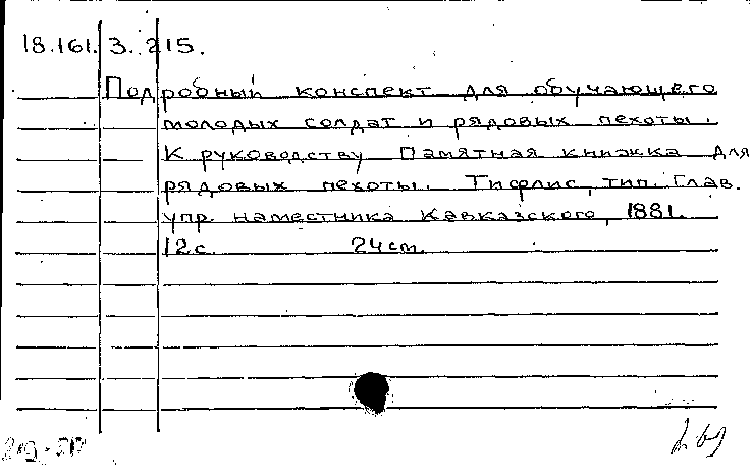 18.161.3.215.
Подробный конспект для обучающего
молодых солдат и рядовых пехоты.
К руководству Памятная книжка для
рядовых пехоты. Тифлис, тип. Глав.
упр. наместника Кавказского, 1881.
12 с. 24 cm.